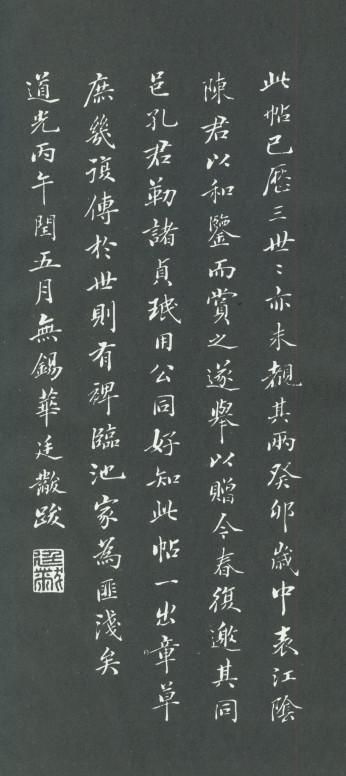 此帖已歷三世〻亦未覩其兩癸卯歲中表江陰
陳君以和鑒而賞之遂舉以贈今春復邀其同
邑孔君勒諸貞珉用公同好知此帖一出章草
庶幾復傳於世則有裨臨池家為匪淺矣
道光丙午閏五月無錫華廷黻跋
廷黻